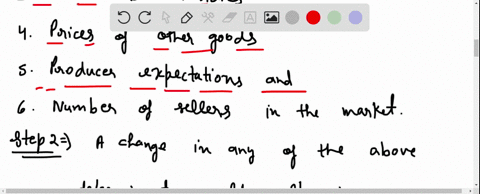 4. Prices of other goods
5. Producer expectations and
6. Number of sellers in the market.
Step 2=) A change in any of the above